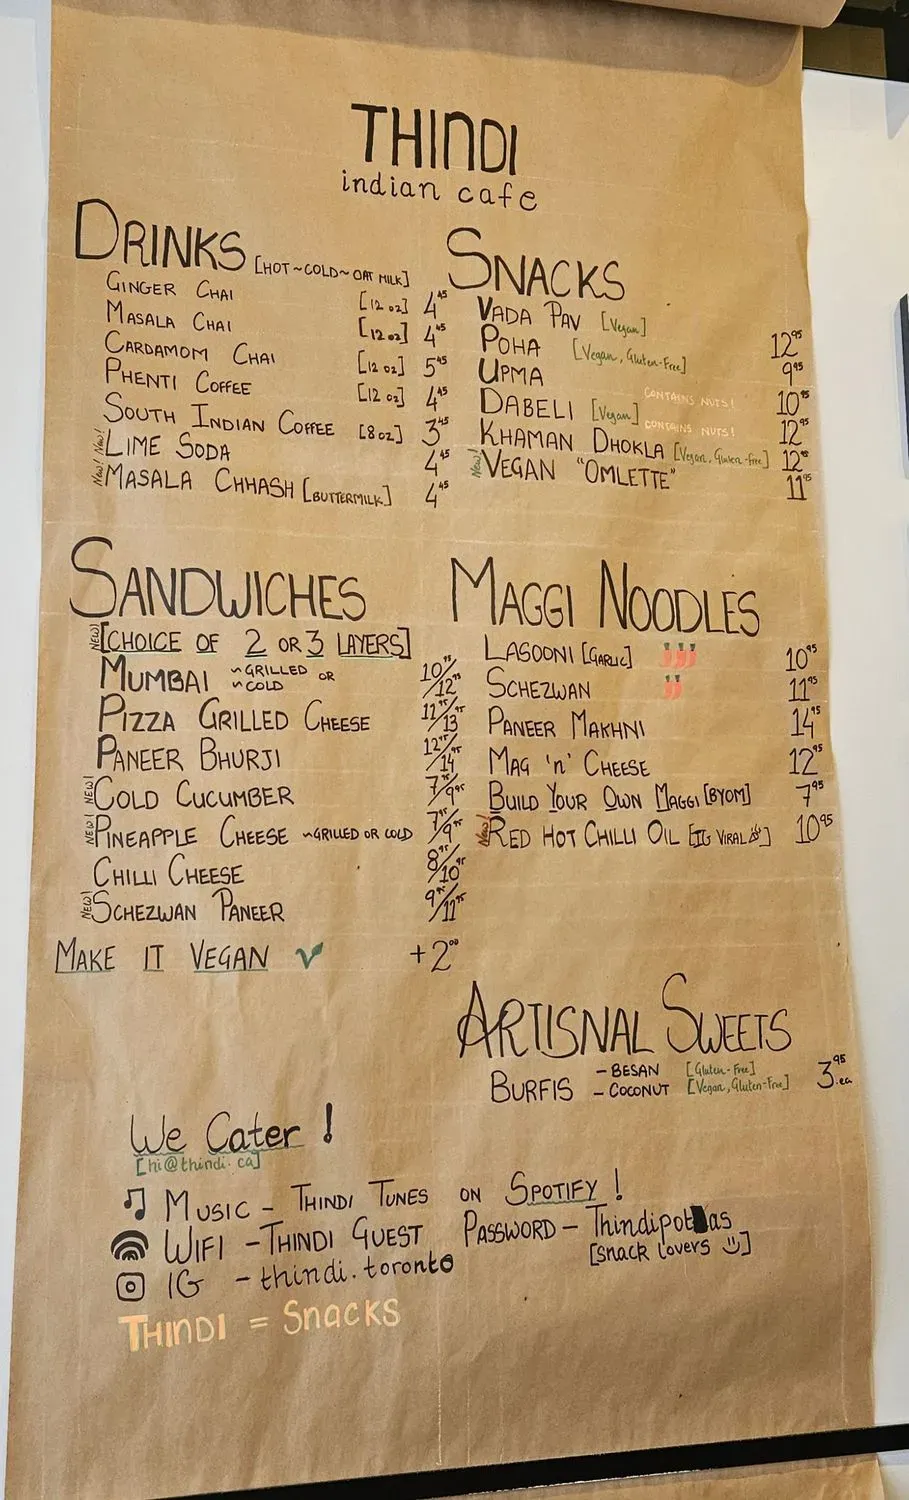 THINDI
indian cafe
DRINKS [HOT~COLD~OAT MILK]
GINGER CHAI [12 oz] 4.45
MASALA CHAI [12 oz] 4.45
CARDAMOM CHAI [12 oz] 5.45
PHENTI COFFEE [12 oz] 4.45
SOUTH INDIAN COFFEE [8 oz] 3.45
New! LIME SODA 4.45
New! MASALA CHHASH [BUTTERMILK] 4.45
SNACKS
VADA PAV [Vegan] 12.95
POHA [Vegan, Gluten-Free] 9.95
UPMA CONTAINS NUTS! 10.95
DABELI [Vegan] CONTAINS NUTS! 12.95
KHAMAN DHOKLA [Vegan, Gluten-free] 12.95
New! VEGAN "OMLETTE" 11.95
SANDWICHES
NEW! [CHOICE OF 2 OR 3 LAYERS]
MUMBAI ~GRILLED OR ~COLD 10.95/12.95
PIZZA GRILLED CHEESE 11.95/13.95
PANEER BHURJI 12.95/14.95
NEW! COLD CUCUMBER 7.95/9.95
NEW! PINEAPPLE CHEESE ~GRILLED OR COLD 7.95/9.95
CHILLI CHEESE 8.95/10.95
NEW! SCHEZWAN PANEER 9.95/11.95
MAKE IT VEGAN +2.00
MAGGI NOODLES
LASOONI [GARLIC] 10.95
SCHEZWAN 11.95
PANEER MAKHNI 14.95
MAG 'n' CHEESE 12.95
BUILD YOUR OWN MAGGI [BYOM] 7.95
New! RED HOT CHILLI OIL [IG VIRAL] 10.95
ARTISNAL SWEETS
BURFIS - BESAN [Gluten-Free] 3.95 ea
- COCONUT [Vegan, Gluten-Free]
We Cater!
[hi@thindi.ca]
MUSIC - THINDI TUNES ON SPOTIFY!
WIFI - THINDI GUEST PASSWORD - Thindipot as
[snack lovers]
IG - thindi.toronto
THINDI = Snacks